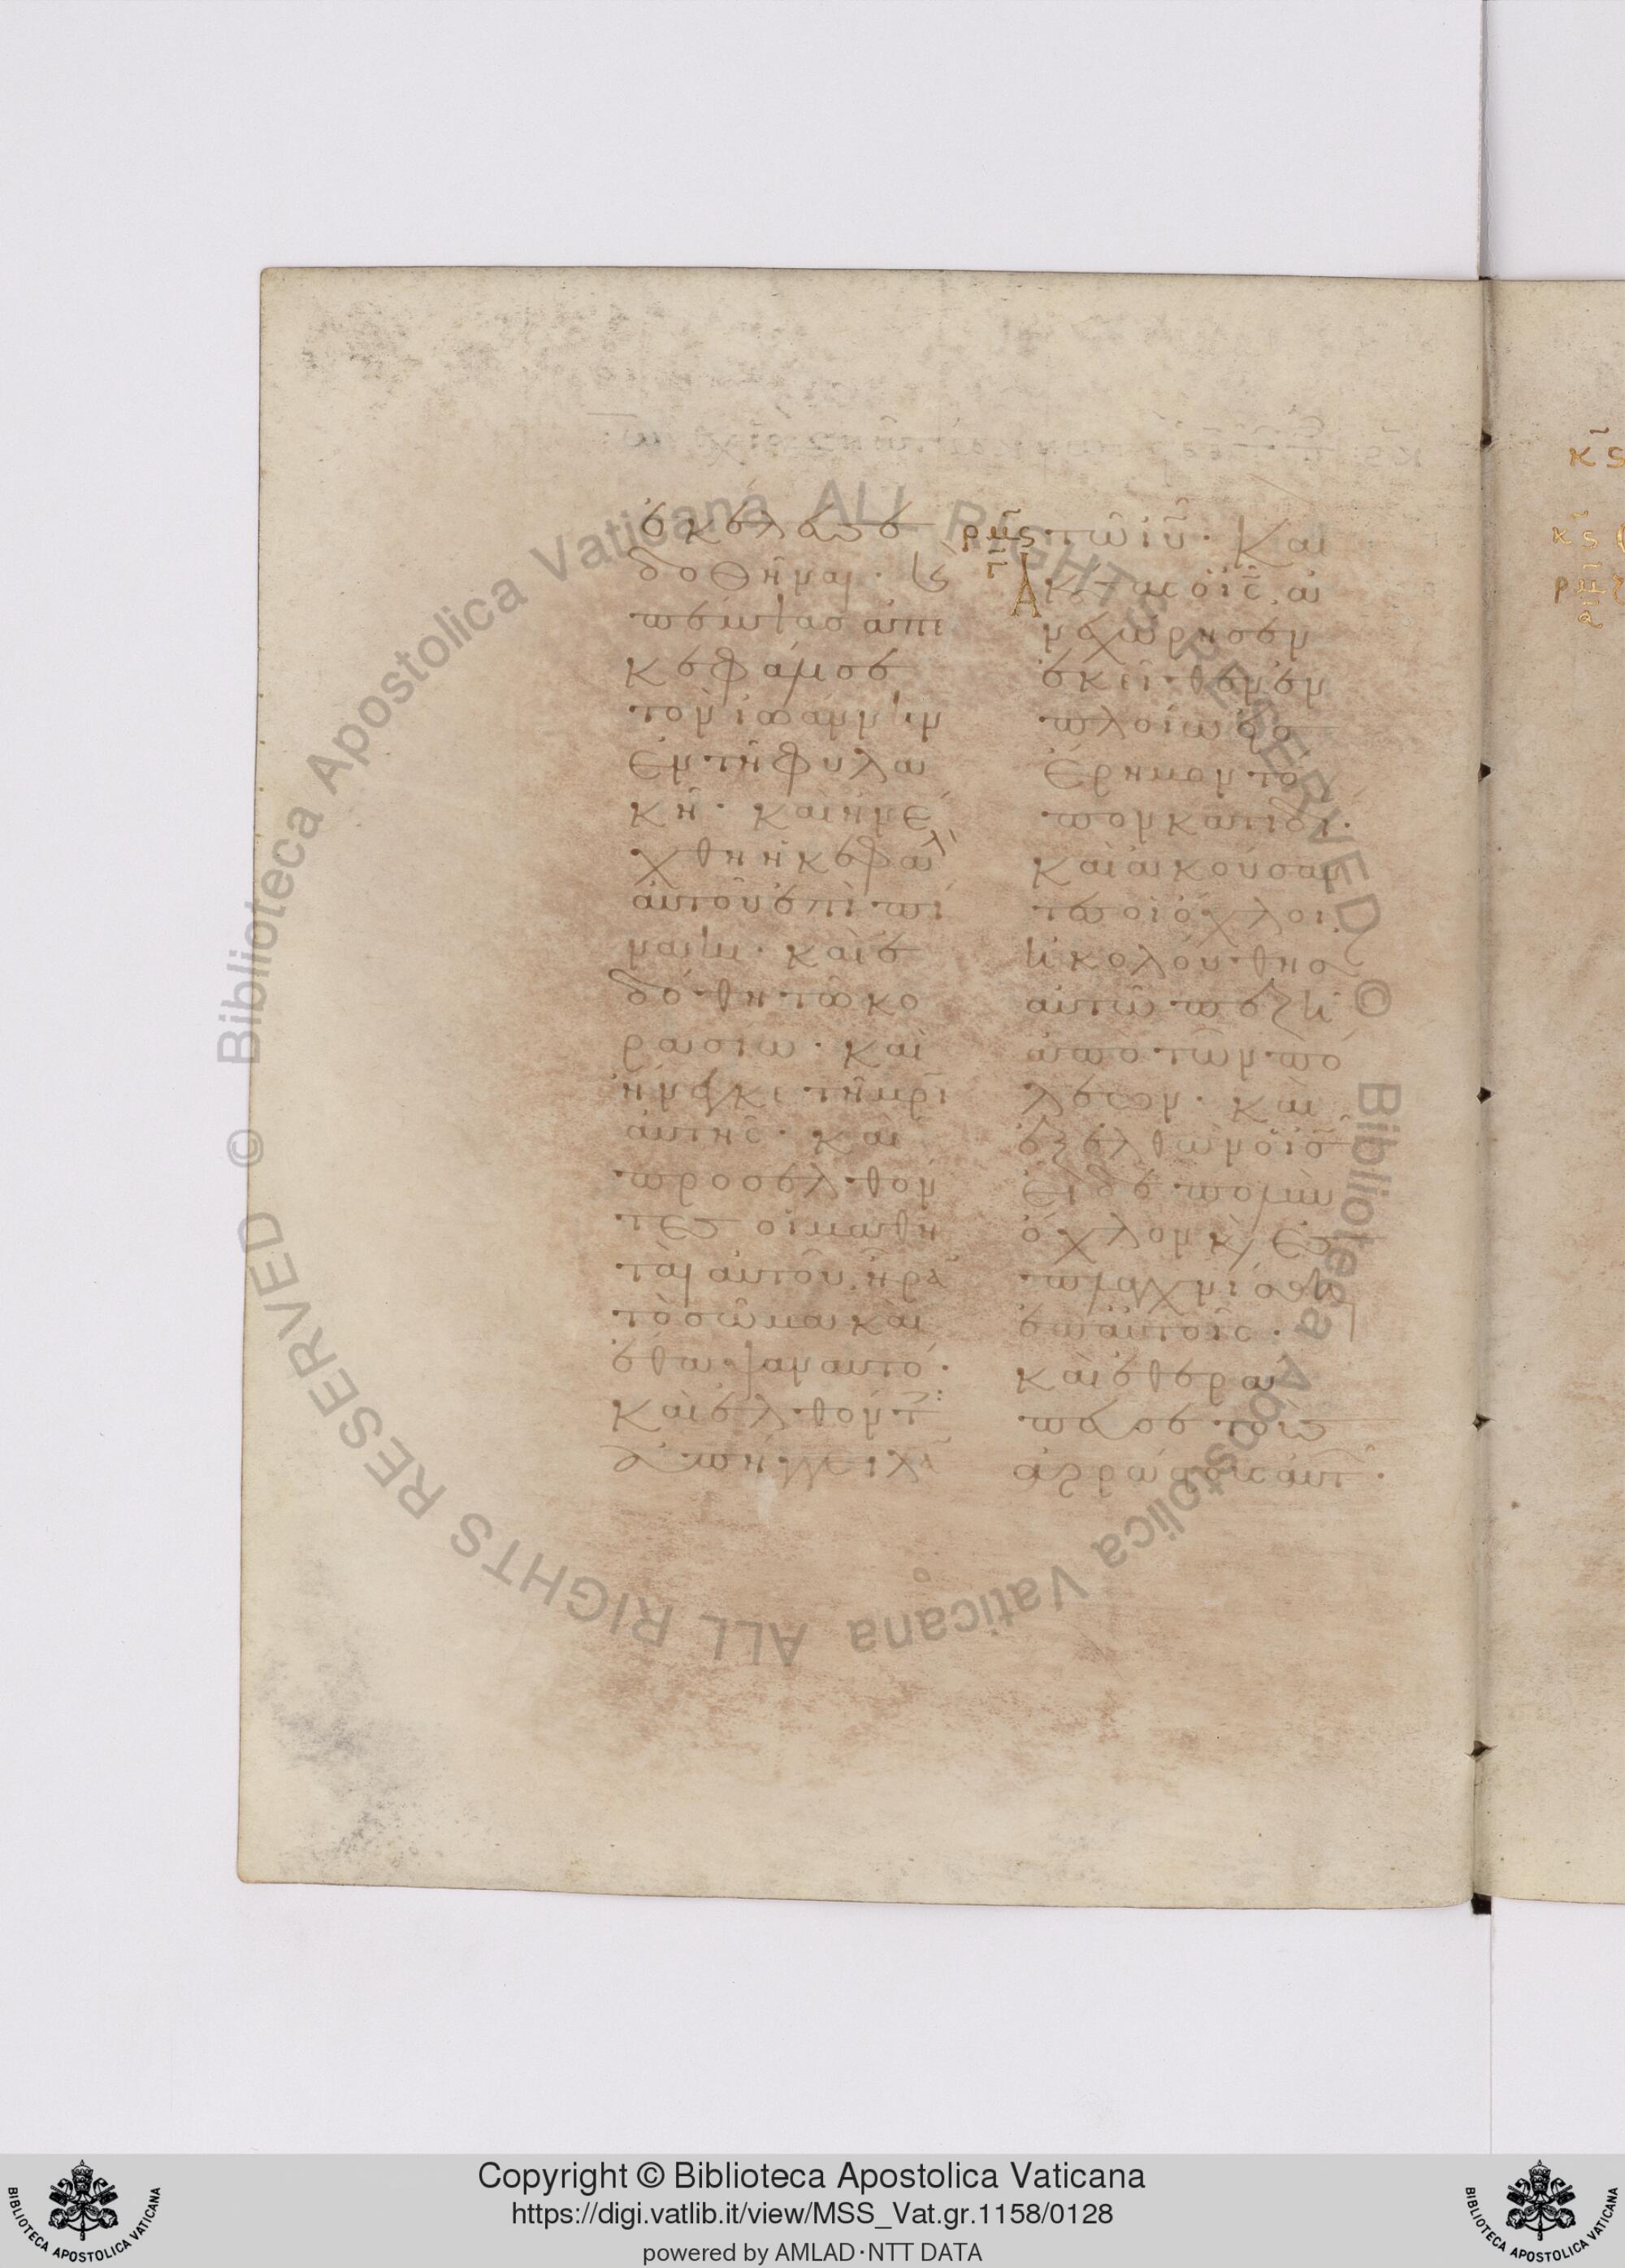 ἐκέλευσε
δοθῆναι· καὶ
πέμψας ἀπε
κεφάλισε
τὸν ἰωάννην
ἐν τῆ φυλα
κῆ· καὶ ἠνέ
χθη ἡ κεφαλὴ
αὐτοῦ ἐπὶ πί
νακι· καὶ ἐ
δόθη τῶ κο
ρασίω· καὶ
ἤνεγκε τῆ μρὶ
αὐτῆς· καὶ
προσελθόν
τες οἱ μαθη
ταὶ αὐτοῦ ἦραν
τὸ σῶμα καὶ
ἔθαψαν αὐτό·
καὶ ἐλθόντες
ἀπήγγειλαν
ρμς τῶ ιυ· Καὶ
ἀκούσας ὁ ις ἀ
νεχώρησεν
ἐκεῖθεν ἐν
πλοίω εἰς
ἔρημον τό
πον κατ ιδί·
καὶ ἀκούσαν
τες οἱ ὄχλοι
ἠκολούθησαν
αὐτῶ πεζῆ
ἀπὸ τῶν πό
λεων· καὶ
ἐξελθὼν ὁ ις
εἶδε πολὺν
ὄχλον καὶ ἐ
σπλαγχνίσθη
ἐπ αὐτοῖς·
καὶ ἐθερά
πευσε τοὺς
ἀρρώστους αὐτ·
κς
κς
Copyright © Biblioteca Apostolica Vaticana
https://digi.vatlib.it/view/MSS_Vat.gr.1158/0128
powered by AMLAD·NTT DATA
© Biblioteca Apostolica Vaticana ALL RIGHTS RESERVED © Biblioteca Apostolica Vaticana ALL RIGHTS RESERVED
BIBLIOTECA APOSTOLICA VATICANA
BIBLIOTECA APOSTOLICA VATICANA